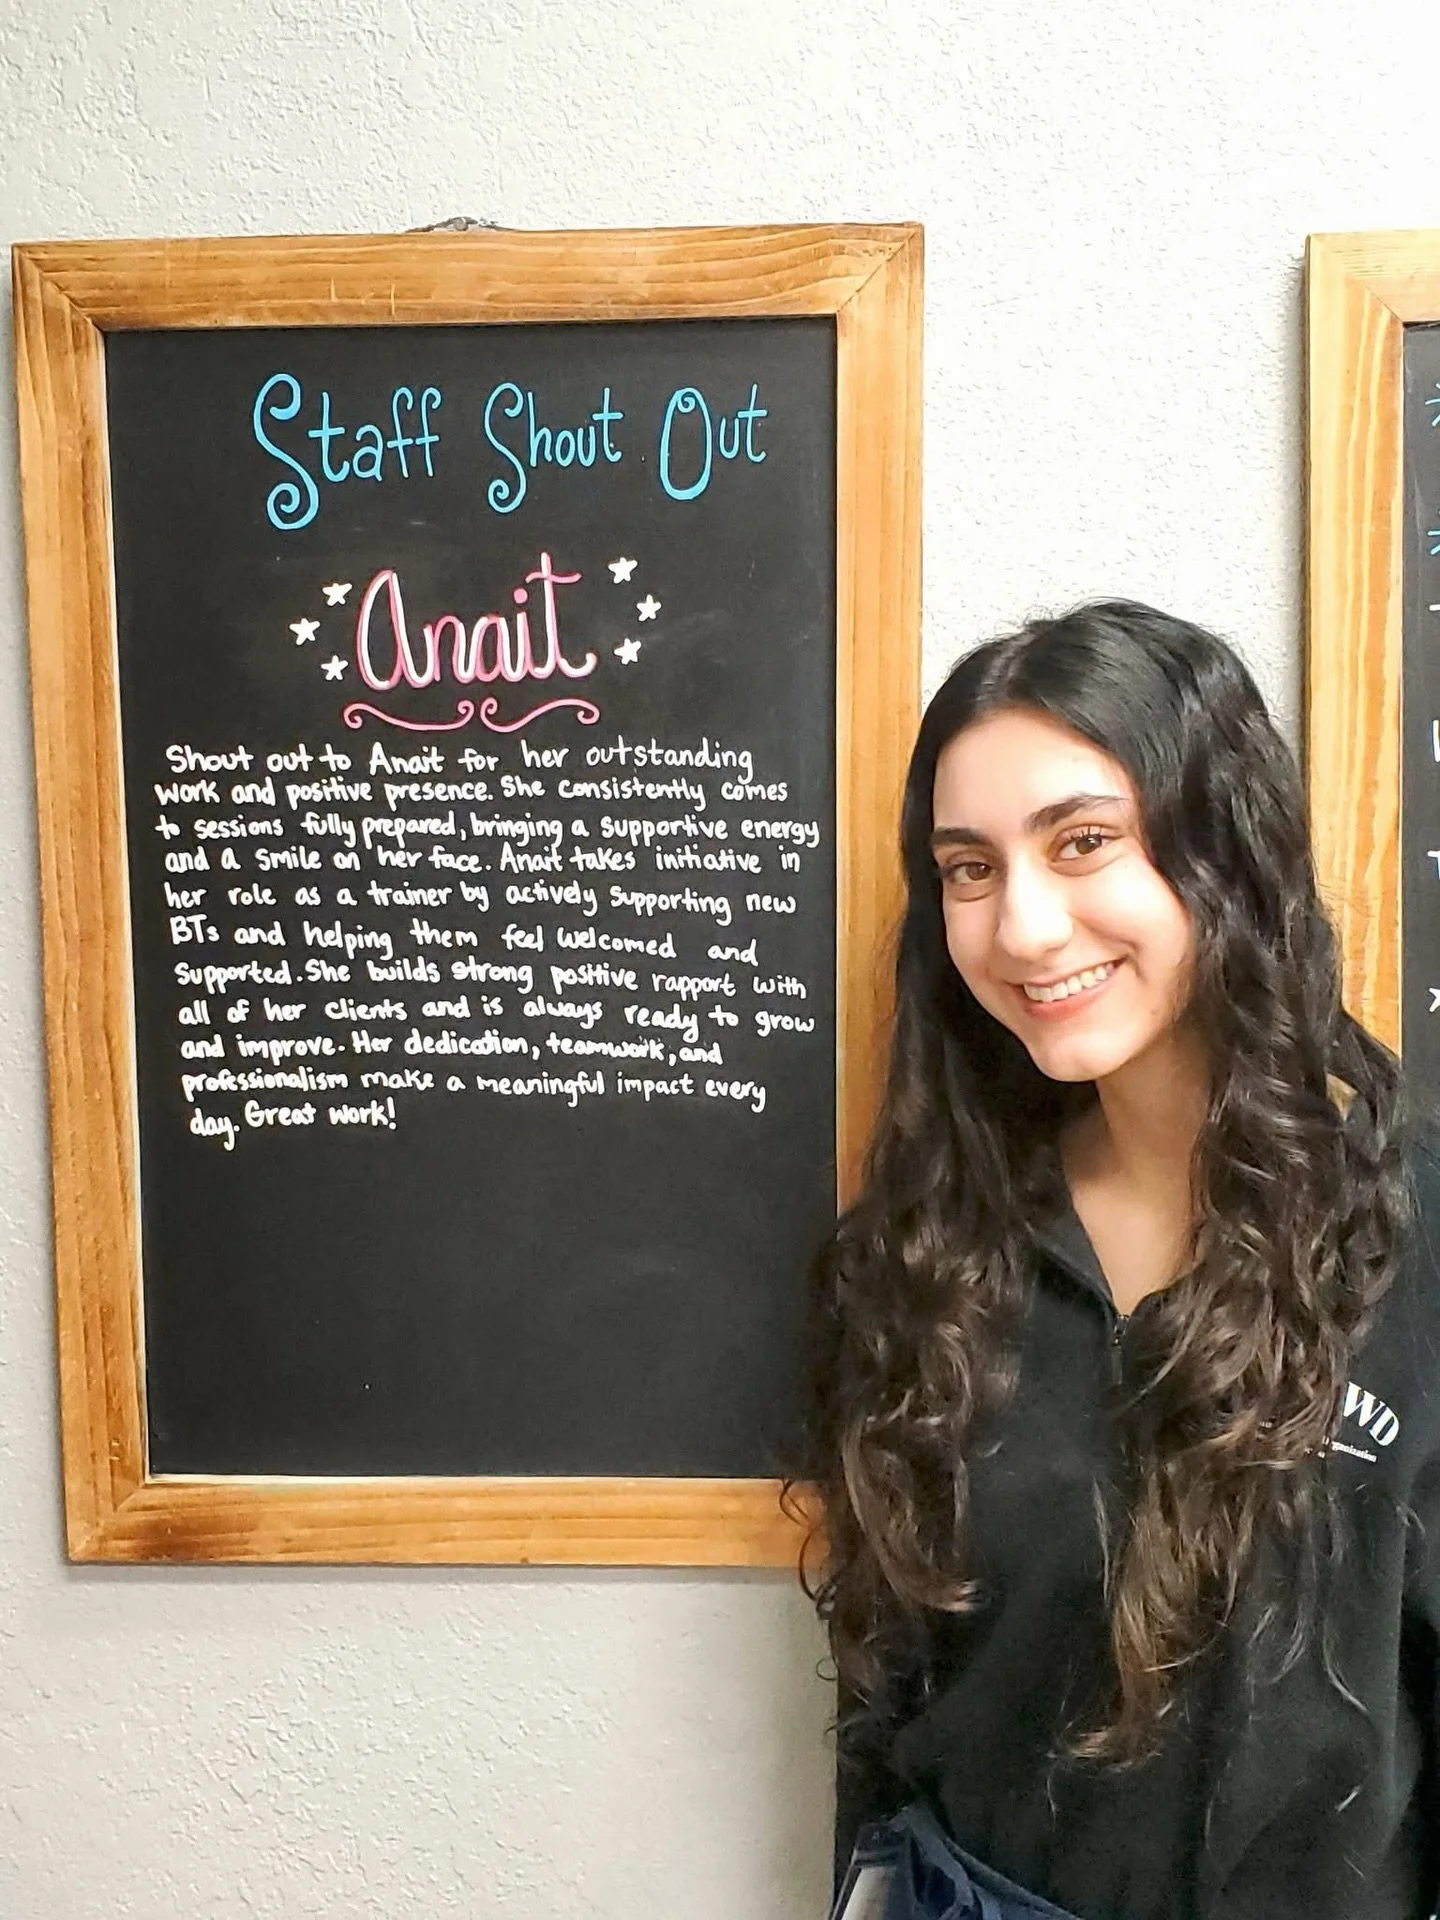 Staff Shout Out
Anait
Shout out to Anait for her outstanding
work and positive presence. She consistently comes
to sessions fully prepared, bringing a supportive energy
and a smile on her face. Anait takes initiative in
her role as a trainer by actively supporting new
BTs and helping them feel welcomed and
supported. She builds strong positive rapport with
all of her clients and is always ready to grow
and improve. Her dedication, teamwork, and
professionalism make a meaningful impact every
day. Great work!
WD